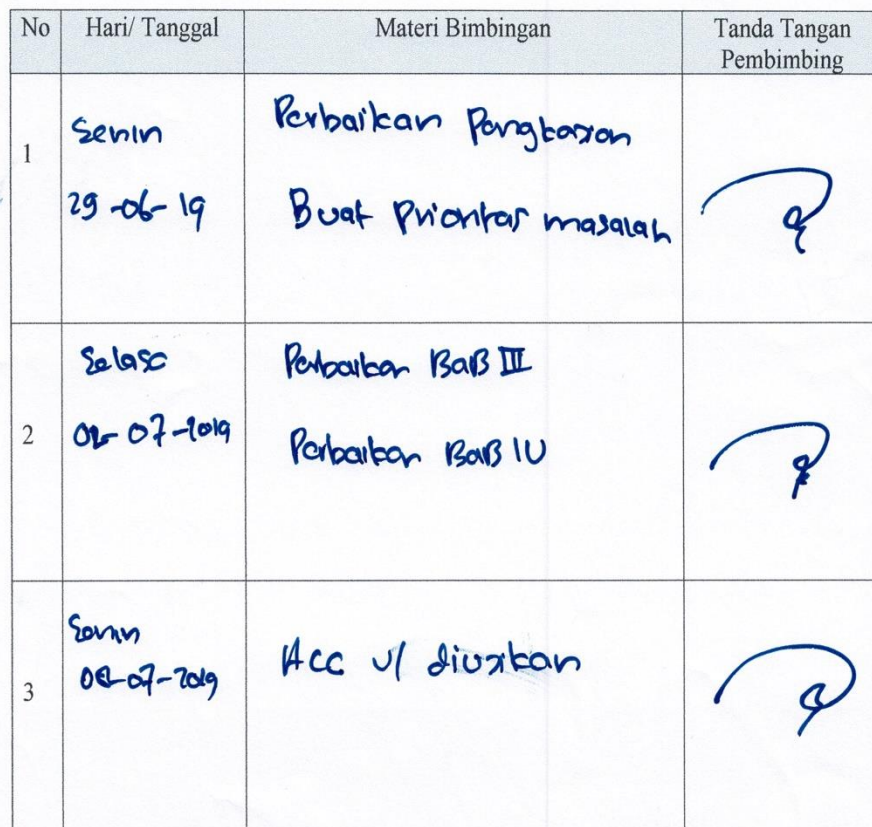 No Hari/ Tanggal Materi Bimbingan Tanda Tangan
Pembimbing
1
Senin
29-06-19
Perbaikan Pengkajian
Buat Prioritas masalah
2
Selasa
02-07-2019
Perbaikan BAB III
Perbaikan BAB IV
3
Senin
08-07-2019
Acc u/ diujikan